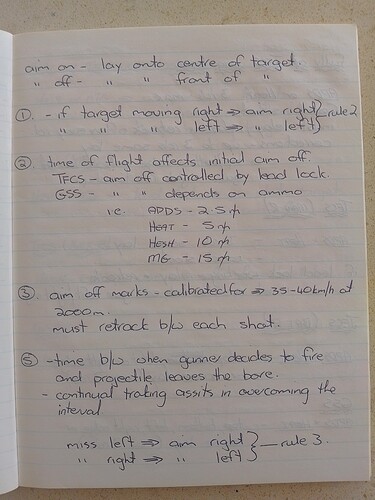 aim on - lay onto centre of target.
" off - " " front of "
① - if target moving right ⇒ aim right } rule 2
" " " left ⇒ " left }
② time of flight affects initial aim off.
TFCS - aim off controlled by lead lock.
GSS - " " depends on ammo
i.e. APDS - 2.5 m
HEAT - 5 m
HESH - 10 m
MG - 15 m
③ aim off marks - calibrated for ⇒ 35-40km/h at
2000m.
must retrack b/w each shot.
⑤ - time b/w when gunner decides to fire
and projectile leaves the bore.
- continual traking assits in overcoming the
interval
miss left ⇒ aim right } rule 3.
" right ⇒ " left }